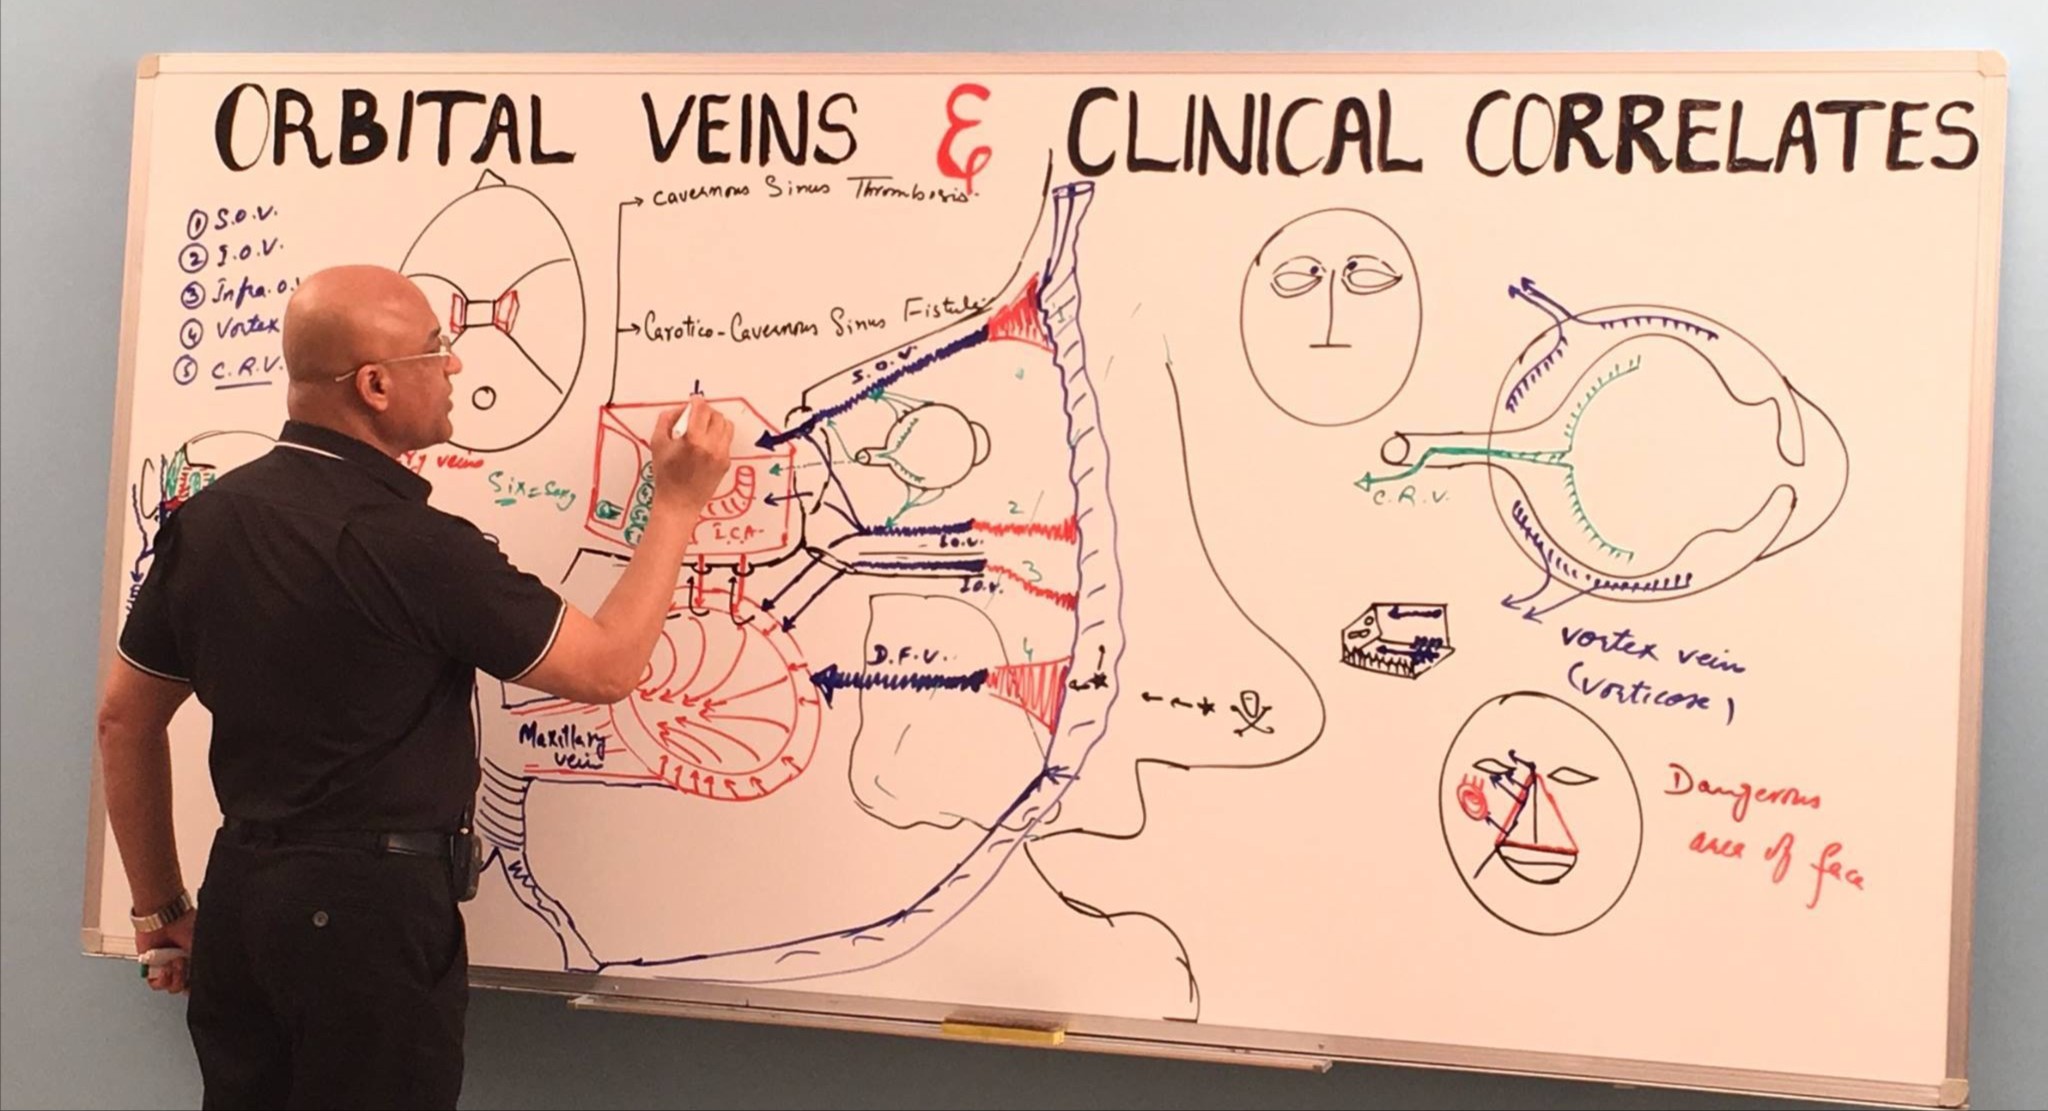 ORBITAL VEINS & CLINICAL CORRELATES
① S.O.V.
② I.O.V.
③ Infra.o.
④ Vortex
⑤ C.R.V.
Cavernous Sinus Thrombosis.
Carotico-Cavernous Sinus Fistula
S.O.V.
Six = Song
I.C.A.
veins
2
I.O.V.
3
D.F.V.
4
Maxillary
vein
C.R.V.
Vortex vein
(vorticose)
Dangerous
area of face